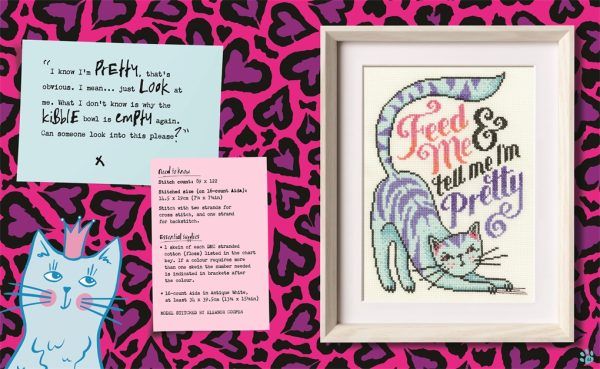 "I know I'm PrEtty, that's
obvious. I mean... just LOOK at
me. What I don't know is why the
KiBBlE bowl is EMPTY again.
Can someone look into this please?"
x
Need to know
Stitch count: 89 x 122
Stitched size (on 16-count Aida):
Stitch with two strands for
cross stitch, and one strand
for backstitch.
Essential supplies
• 1 skein of each DMC stranded
cotton (floss) listed in the chart
key. If a colour requires more
than one skein the number needed
is indicated in brackets after
the colour.
• 16-count Aida in Antique White,
at least 34 x 39.5cm
MODEL STITCHED BY ELEANOR COOPER
Feed
Me &
tell me I'm
Pretty